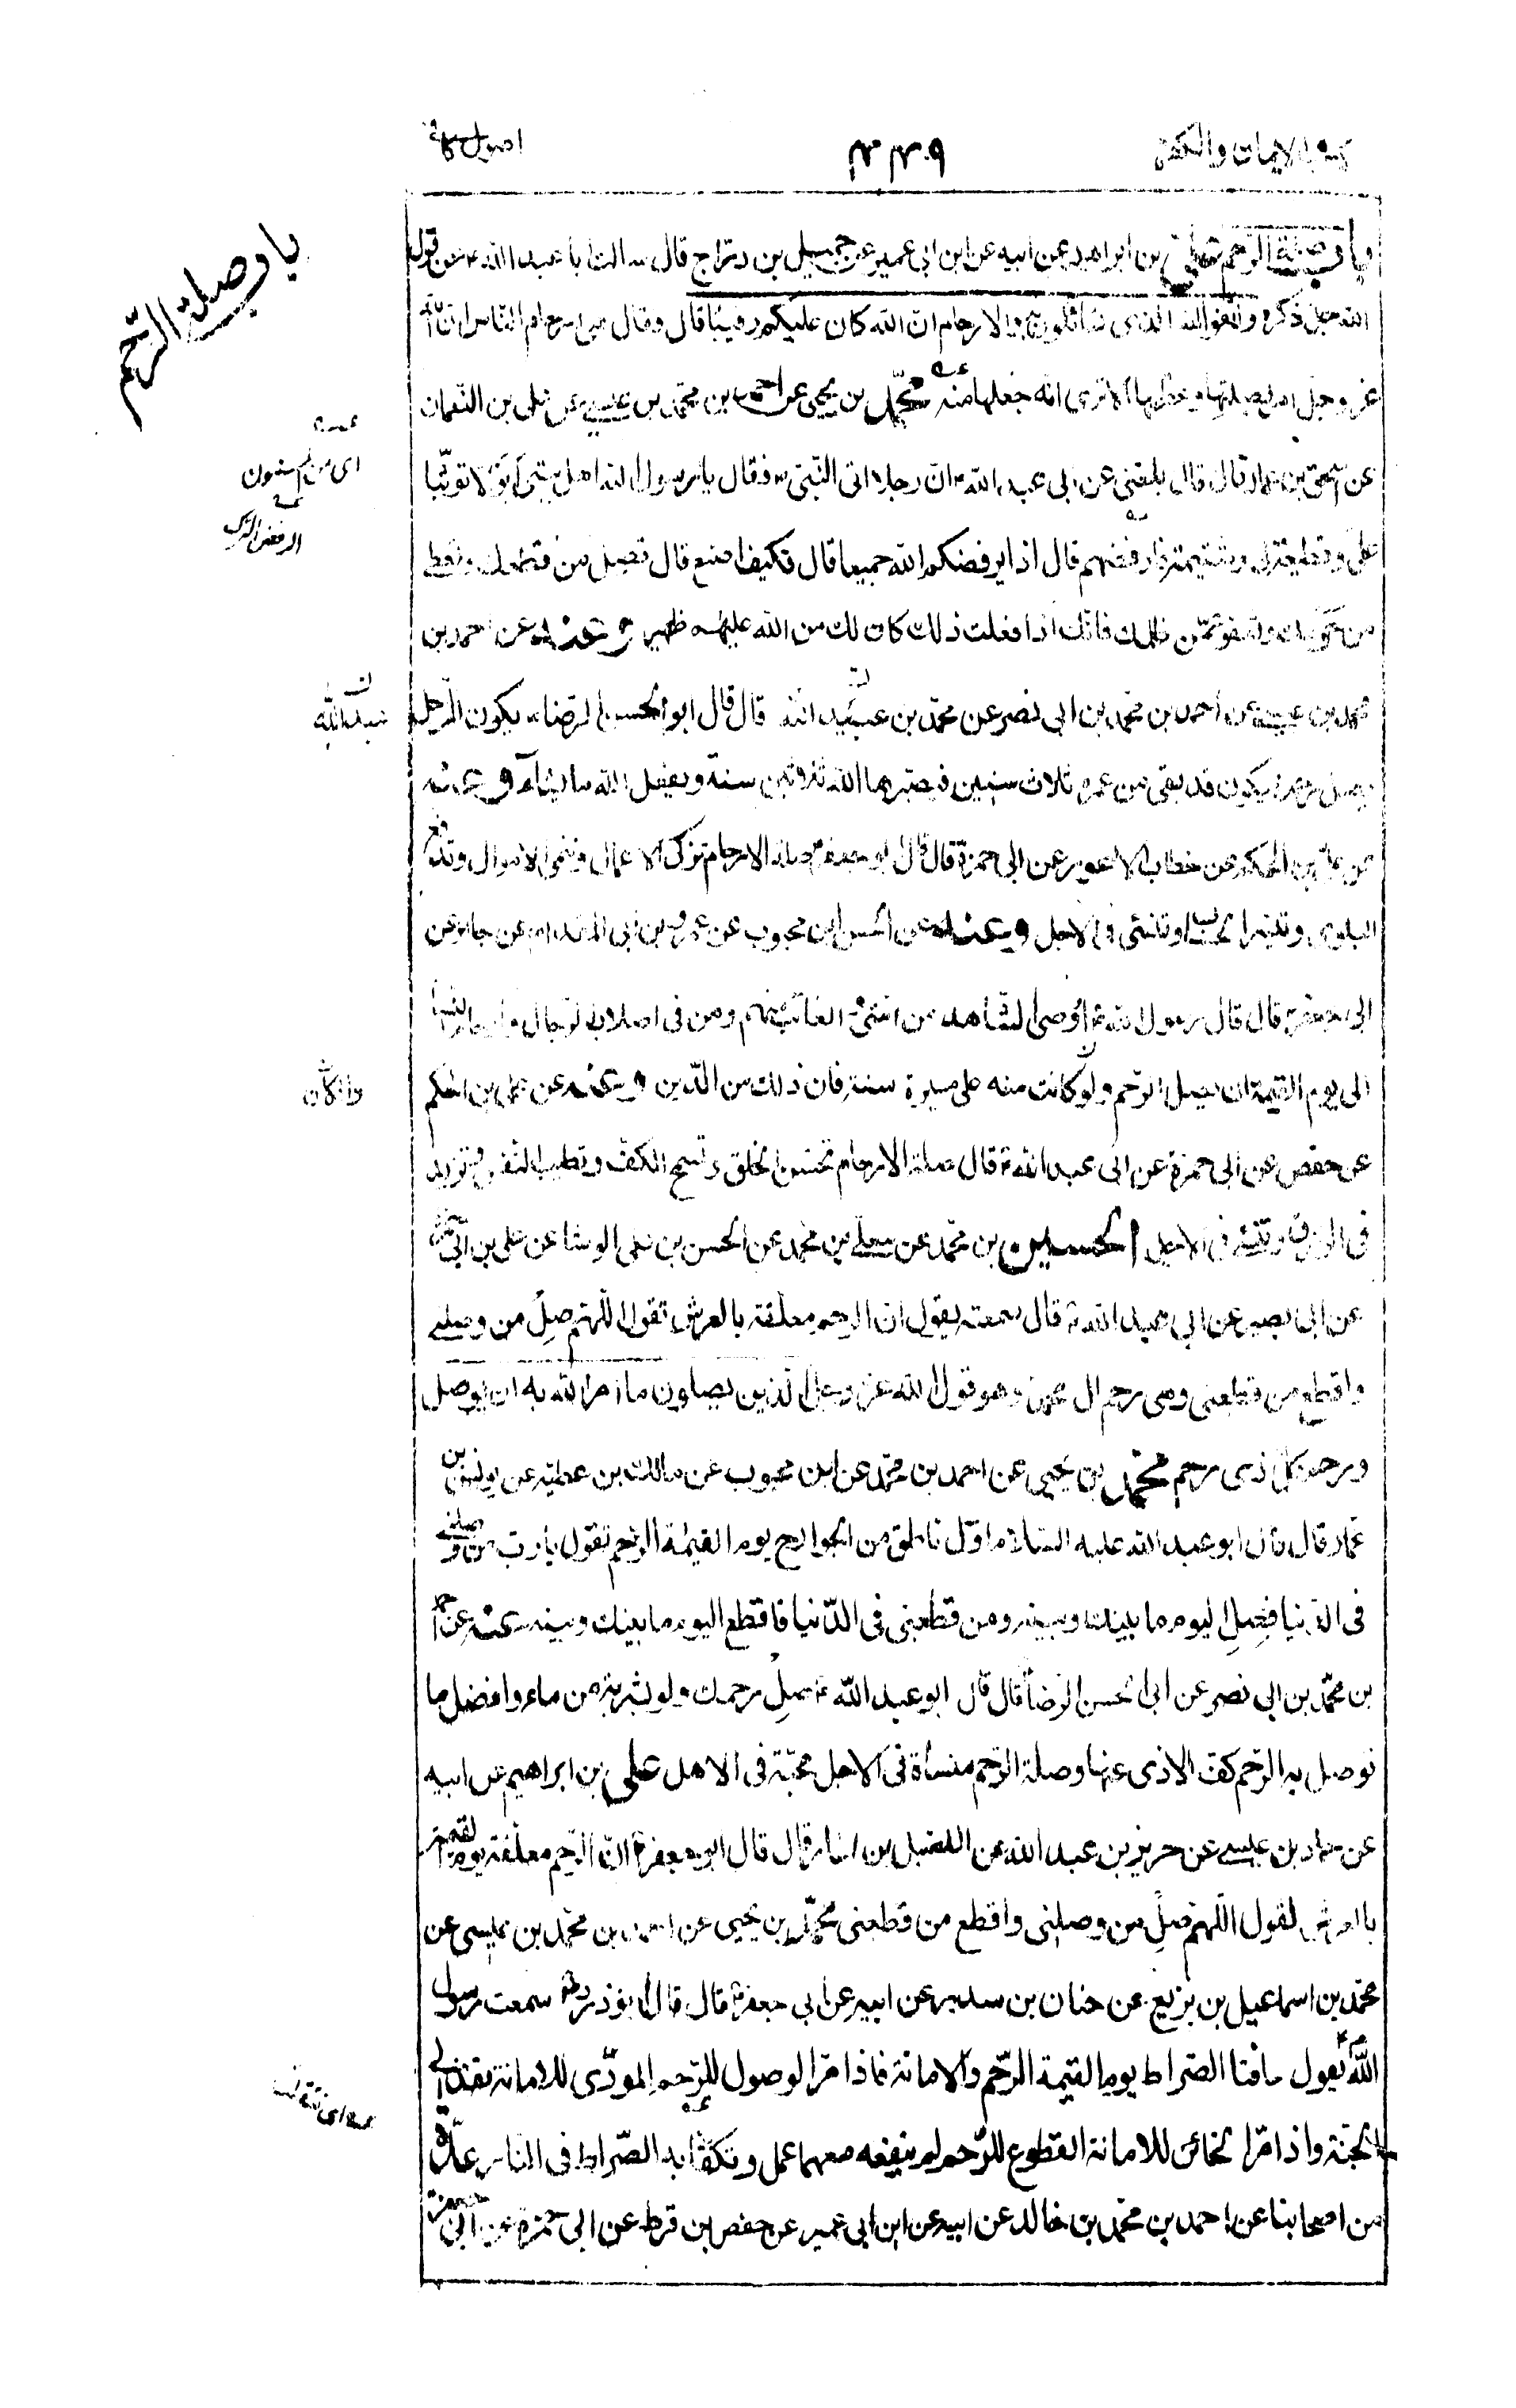 كتاب الايمان والكفر
اصول كافى
باب صلة الرّحم
باب صلة الرّحم على بن ابراهيم عن ابيه عن ابن ابى عمير عن جميل بن درّاج قال سالت ابا عبد الله ع عن قول
الله جل ذكره واتقوا الله الذى تسائلون به والارحام ان الله كان عليكم رقيبا قال وقال هى ارحام النّاس ان الله
عز وجل امر بصلتها وعظمها الا ترى انه جعلها منه محمّد بن يحيى عن احمد بن محمّد بن عيسى عن على بن النّعمان
عن اسحق بن عمار قال قال بلغنى عن ابى عبد الله ع ان رجلا اتى النّبى ص فقال يا رسول الله اهل بيتى ابوا الا توثّبا
علىّ وقطيعة لى وشتيمة فارفضهم قال اذا يرفضكم الله جميعا قال فكيف اصنع قال تصل من قطعك وتعطى
من حرمك وتعفو عمّن ظلمك فانّك اذا فعلت ذلك كان لك من الله عليهم ظهير وعنه عن احمد بن
محمد بن عيسى عن احمد بن محمد بن ابى نصر عن محمّد بن عبيد الله قال قال ابو الحسن الرضا ع يكون الرّجل
يصل رحمه فيكون قد بقى من عمره ثلاث سنين فيصيّرها الله ثلاثين سنة ويفعل الله ما يشآء وعنه
عن على بن الحكم عن خطاب الاعور عن ابى حمزة قال قال ابو جعفر ع صلة الارحام تزكى الاعمال وتنمى الاموال وتدفع
البلوى وتيسر الحساب وتنسئ فى الاجل وعنه عن الحسن بن محبوب عن عمرو بن ابى المقدام عن جابر عن
ابى جعفر ع قال قال رسول الله ص اوصى الشّاهد من امّتى والغائب منهم ومن فى اصلاب الرّجال وارحام النّساء
الى يوم القيمة ان يصل الرّحم ولو كانت منه على مسيرة سنة فان ذلك من الدّين وعنه عن على بن الحكم
عن حفص عن ابى حمزة عن ابى عبد الله ع قال صلة الارحام تحسّن الخلق وتسمح الكفّ وتطيب النّفس وتزيد
فى الرزق وتنسئ فى الاجل الحسين بن محمّد عن معلى بن محمد عن الحسن بن على الوشا عن على بن ابى حمزة
عن ابى بصير عن ابى عبد الله ع قال سمعته يقول ان الرحم معلّقة بالعرش تقول اللّهم صل من وصلنى
واقطع من قطعنى وهى رحم ال محمد وهو قول الله عز وجل الّذين يصلون ما امر الله به ان يوصل
ورحم كل ذى رحم محمّد بن يحيى عن احمد بن محمّد عن ابن محبوب عن مالك بن عطيّة عن يونس بن
عمّار قال قال ابو عبد الله عليه السّلام اوّل ناطق من الجوارح يوم القيمة الرّحم تقول يا ربّ من وصلنى
فى الدّنيا فصل اليوم ما بينك وبينه ومن قطعنى فى الدّنيا فاقطع اليوم ما بينك وبينه عنه عن احمد
بن محمّد بن ابى نصر عن ابى الحسن الرضا ع قال قال ابو عبد الله ع صل رحمك ولو بشربة من ماء وافضل ما
توصل به الرّحم كف الاذى عنها وصلة الرّحم منسأة فى الاجل محبّة فى الاهل على بن ابراهيم عن ابيه
عن حماد بن عيسى عن حريز بن عبد الله عن الفضيل بن يسار قال قال ابو جعفر ع انّ الرّحم معلّقة يوم القيمة
بالعرش تقول اللّهم صل من وصلنى واقطع من قطعنى محمّد بن يحيى عن احمد بن محمّد بن عيسى عن
محمّد بن اسماعيل بن بزيع عن حنان بن سدير عن ابيه عن ابى جعفر ع قال قال ابو ذر رض سمعت رسول
الله ص يقول حافتا الصّراط يوم القيمة الرّحم والامانة فاذا مرّ الوصول للرّحم المؤدّى للامانة نفذ الى
الجنّة واذا مرّ الخائن للامانة القطوع للرّحم لم ينفعه معهما عمل وتكفأ به الصّراط فى النار عدّة
من اصحابنا عن احمد بن محمّد بن خالد عن ابيه عن ابن ابى عمير عن حفص بن قرط عن ابى حمزة عن ابى جعفر
الرفض الترك
عبد الله
وان كان